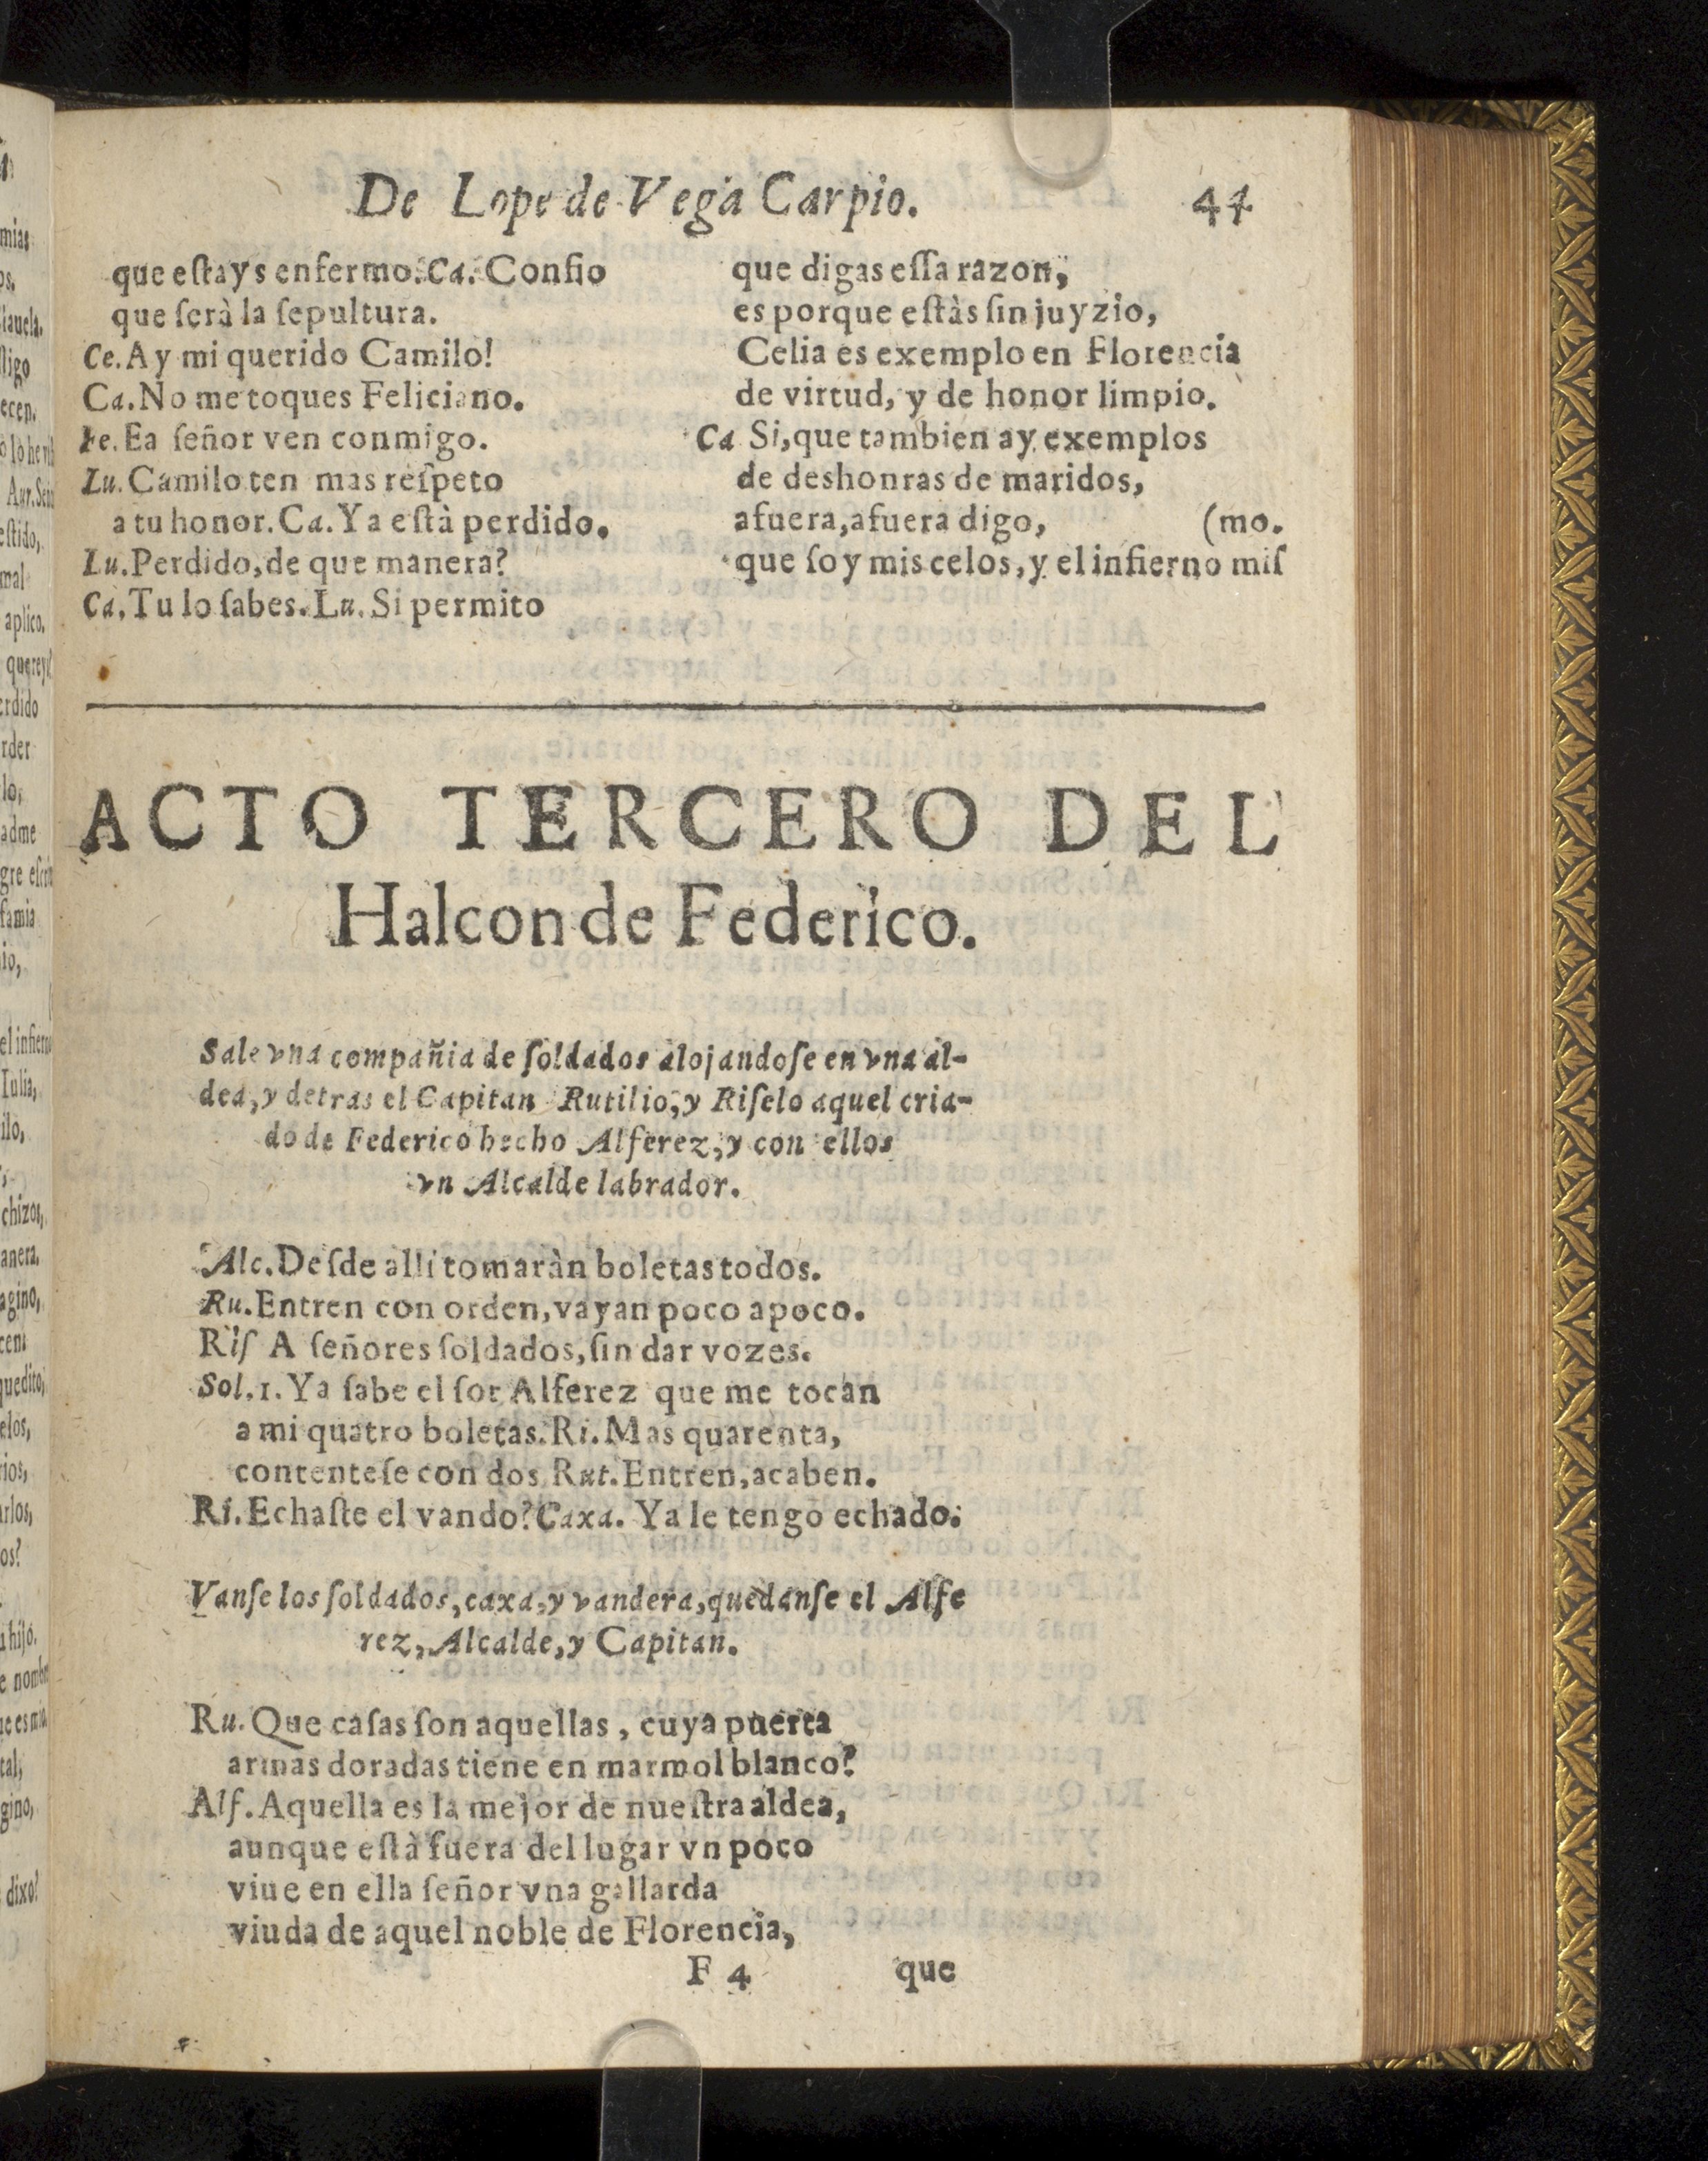 De Lope de Vega Carpio. 44
que eſtays enfermo. Ca. Confio
que ſerà la ſepultura.
Ce. Ay mi querido Camilo!
Ca. No me toques Feliciano.
Fe. Ea ſeñor ven conmigo.
Lu. Camilo ten mas reſpeto
a tu honor. Ca. Ya eſtà perdido.
Lu. Perdido, de que manera?
Ca. Tu lo ſabes. Lu. Si permito
que digas eſſa razon,
es porque eſtàs ſin juyzio,
Celia es exemplo en Florencia
de virtud, y de honor limpio.
Ca Si, que tambien ay exemplos
de deshonras de maridos,
afuera, afuera digo, (mo.
que ſoy mis celos, y el infierno miſ
ACTO TERCERO DEL
Halcon de Federico.
Sale vna compañia de ſoldados alojandoſe en vna al-
dea, y detras el Capitan Rutilio, y Riſelo aquel cria-
do de Federico hecho Alferez, y con ellos
vn Alcalde labrador.
Alc. Deſde alli tomaràn boletas todos.
Ru. Entren con orden, vayan poco a poco.
Riſ A ſeñores ſoldados, ſin dar vozes.
Sol. 1. Ya ſabe el ſor Alferez que me tocan
a mi quatro boletas. Ri. Mas quarenta,
contenteſe con dos Rut. Entren, acaben.
Ri. Echaſte el vando? Caxa. Ya le tengo echado.
Vanſe los ſoldados, caxa, y vandera, quedanſe el Alfe
rez, Alcalde, y Capitan.
Ru. Que caſas ſon aquellas, cuya puerta
armas doradas tiene en marmol blanco?
Alf. Aquella es la mejor de nueſtra aldea,
aunque eſtà fuera del lugar vn poco
viue en ella ſeñor vna gallarda
viuda de aquel noble de Florencia,
F 4 que